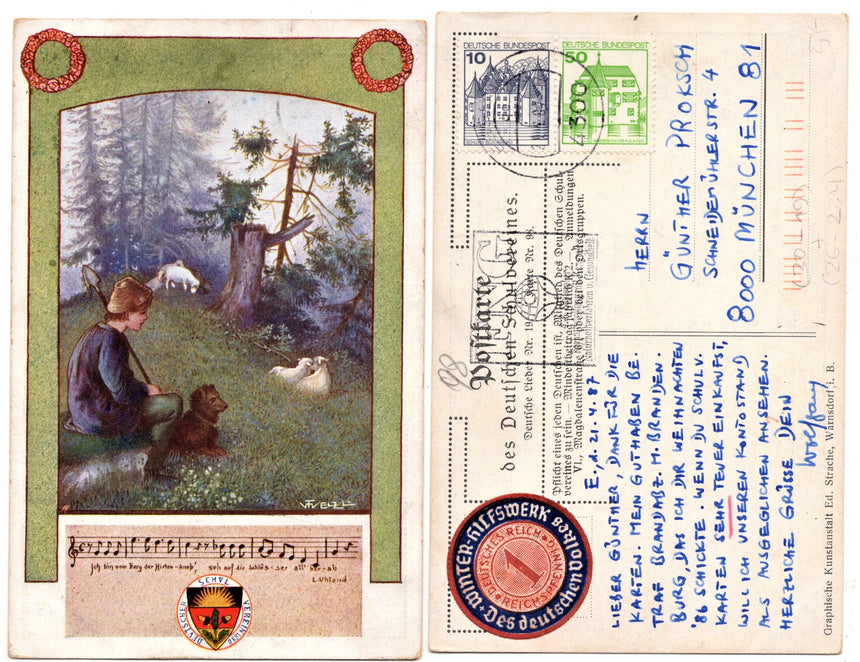 V.F.WELZL
Ich bin vom Berg der Hirten-knab', seh auf die Schlös-ser all' her-ab
L. Uhland
DEUTSCHER SCHUL VEREIN 1880
DEUTSCHE BUNDESPOST
10
DEUTSCHE BUNDESPOST
50
4300
Postkarte
des Deutschen Schulvereines.
Deutsche Lieder Nr. 19 Karte Nr. 98.
Pflicht eines jeden Deutschen ist, Mitglied des Deutschen Schul-
vereines zu sein. — Mindestbeitrag jährlich K 2. — Anmeldungen
VI., Magdalenenstraße oder bei den Ortsgruppen.
Naturheilverfahren u. Gesundheit
HERRN
GÜNTHER PROKSCH
SCHNEIDEMÜHLERSTR. 4
8000 MÜNCHEN 81
98
E., d. 21.4.87
LIEBER GÜNTHER, DANK FÜR DIE
KARTEN. MEIN GUTHABEN BE.
TRAF BRANDABZ. M. BRANDEN.
BURG, DAS ICH DIR WEIHNACHTEN
'86 SCHICKTE. WENN DU SCHULV.
KARTEN SEHR TEUER EINKAUFST,
WILL ICH UNSEREN KONTOSTAND
ALS AUSGEGLICHEN ANSEHEN.
HERZLICHE GRÜSSE DEIN
Wolfgang
WINTER-HILFSWERK
Des deutschen Volkes
DEUTSCHES REICH
1
REICHSPFENNIG
Graphische Kunstanstalt Ed. Strache, Warnsdorf i. B.